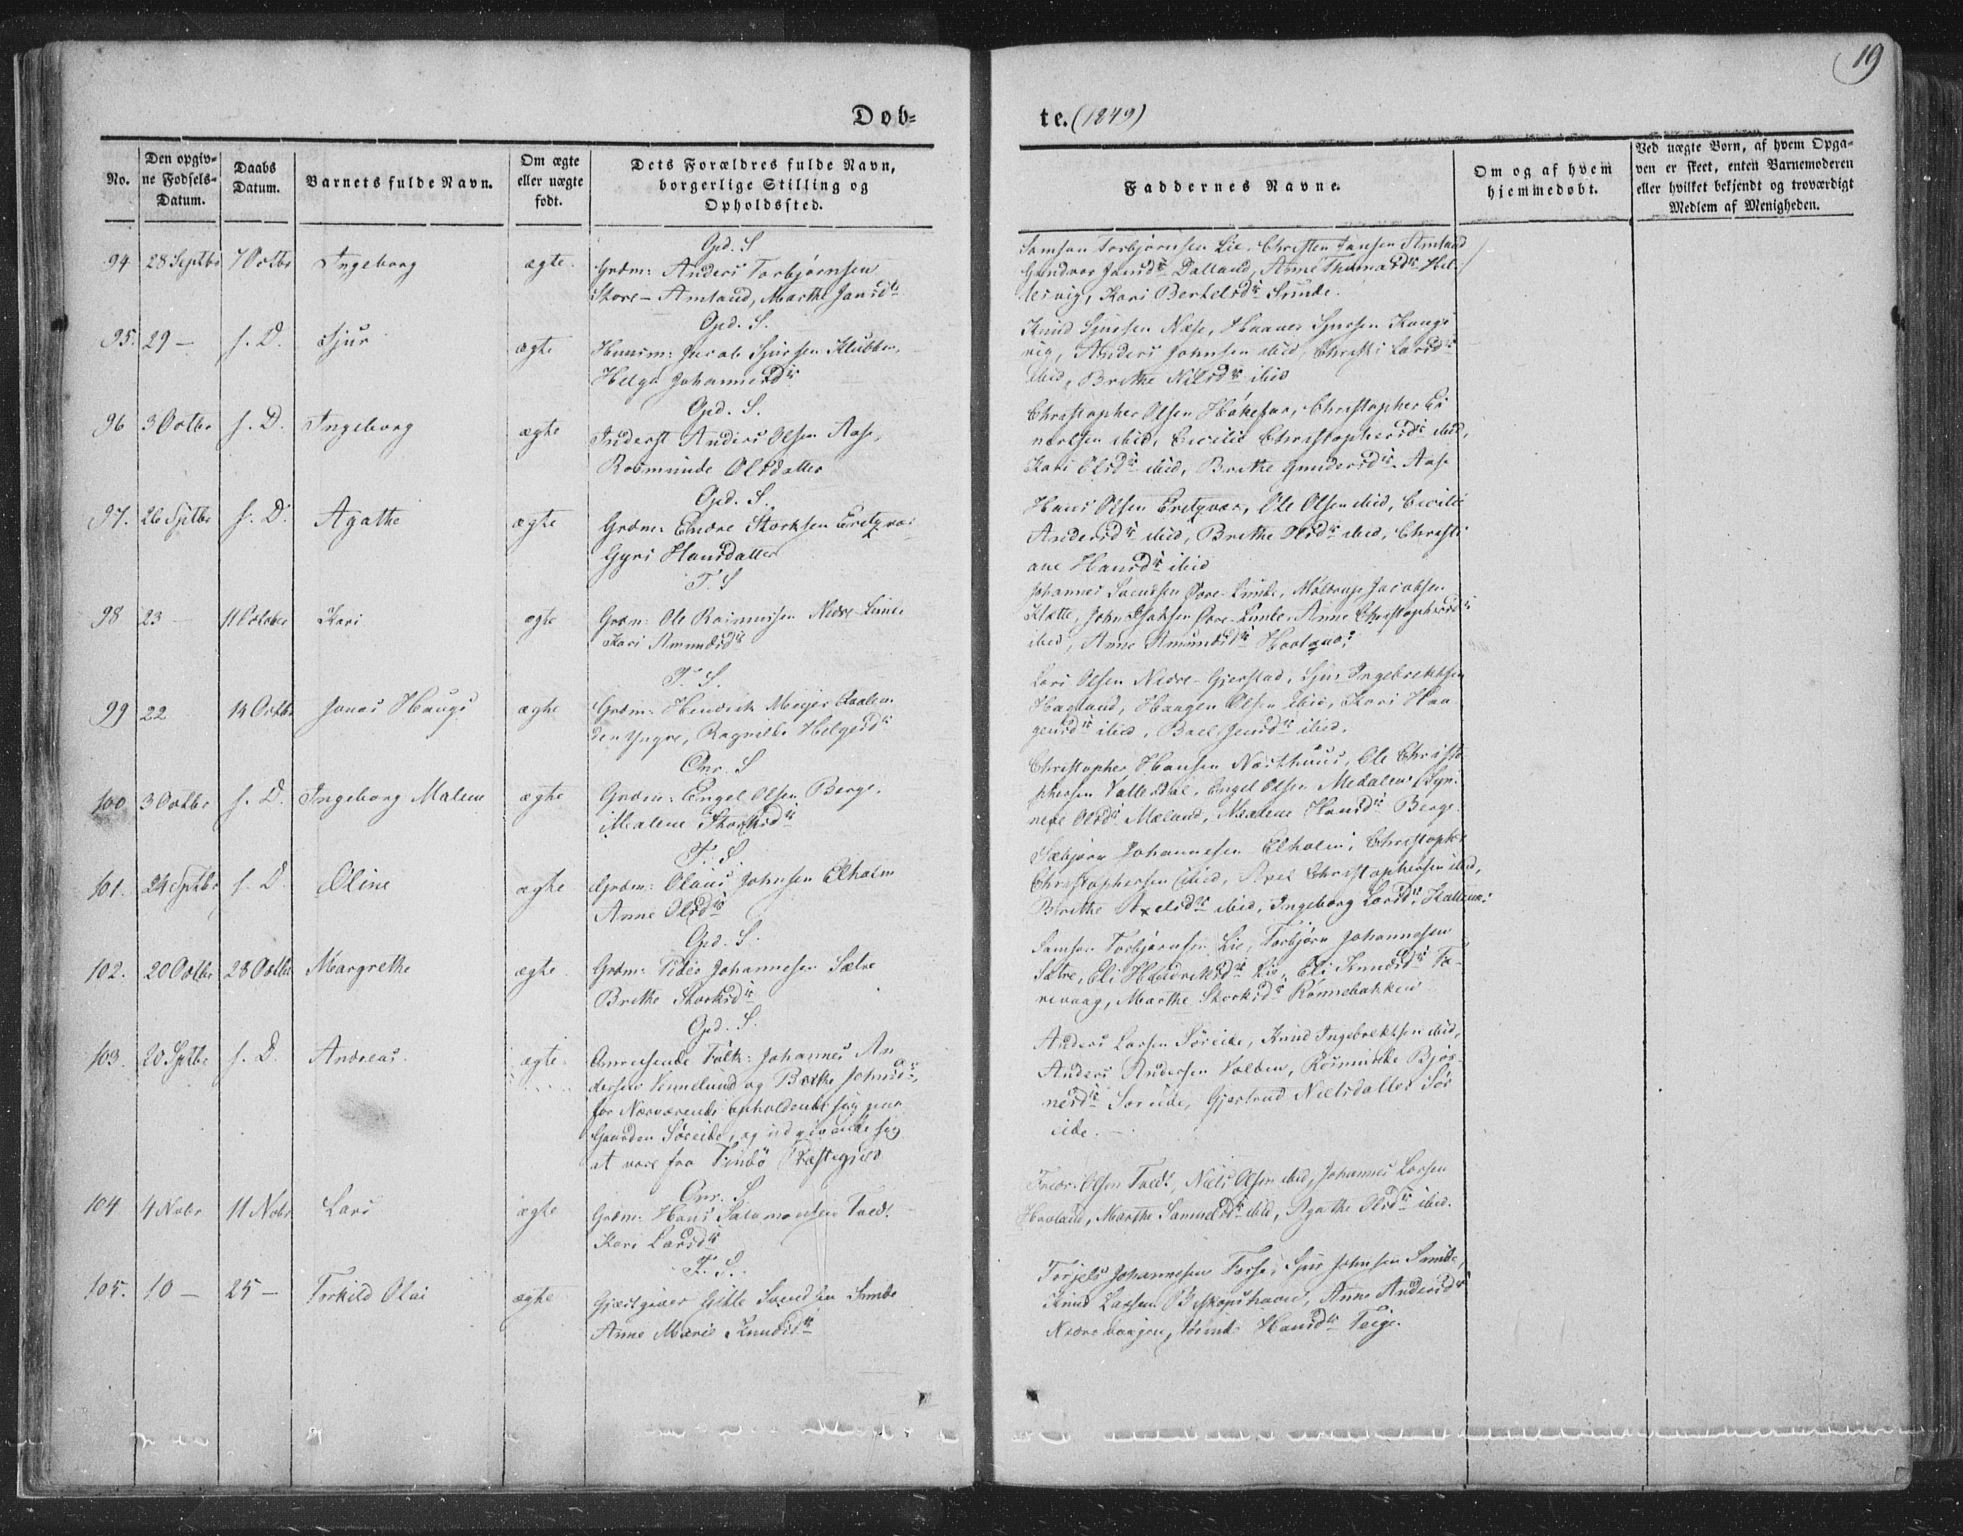 19
Døb-
te. (1849)
No.
Den opgiv-
ne Fødsels-
Datum.
Daabs
Datum.
Barnets fulde Navn.
Om ægte
eller uægte
født.
Dets Forældres fulde Navn,
borgerlige Stilling og
Opholdssted.
Faddernes Navne.
Om og af hvem
hjemmedøbt.
Ved uægte Børn, af hvem Opga-
ven er skeet, enten Barnemoderen
eller hvilket bekjendt og troværdigt
Medlem af Menigheden.
Opd. S
94 28 Septbr 7 Octbr Ingeborg ægte
Grdm: Anders Torbjørnsen
Store-Amland, Marthe Jansdtr
Samson Torbjørnsen Lie, Christen Jansen Amland
Gundvor Jansdtr Dalland, Anne Thomasdtr Hel-
lesvig, Kari Bertelsdtr Sunde.
Opd. S.
95. 29 — s. D. Sjur ægte
Huusm: Jacob Sjursen Klubben,
Helga Johannesdtr
Knud Sjursen Næse, Haaver Sjursen Kongs
vig, Anders Johnsen ibid, Larsdtr
ibid, Brithe Nilsdtr ibid
Opd. S.
96 3 Octbr s. D. Ingeborg ægte
Inderst Anders Olsen Aase,
Rasmunde Olsdatter
Christopher Olsen, Christopher Ei
narsen ibid, Cecilie Christophersdtr ibid,
Kari Olsdtr ibid, Brithe Gundersdtr Aase
Opd. S.
97. 26 Sptbr s. D. Agathe ægte
Grdm: Endre Storksen
Gyri Hansdatter
Hans Olsen, Ole Olsen ibid, Cecilie
Andersdtr ibid, Brithe Olsdtr ibid, Christi
ane Hansdtr ibid
T. S
98 23 — 11 October Kari ægte
Grdm: Ole Rasmussen Nedre-Limbe
Kari Amundsdtr
Johannes Svendsen Øvre-Limbe, Jacobsen
Klette, John Isaksen Øvre-Limbe, Anne Christophersdtr
ibid, Anne Amundsdtr
T. S.
99 22 14 Octbr Jonas Haugs ægte
Grdm: Hendrik Meyer
den Yngre, Ragnilde Helgesdtr
Lars Olsen Nedre-Gjerstad, Sjur Ingebrektsen
Hagland, Haagen Olsen ibid, Kari Haa
gensdtr ibid, Jensdtr ibid.
Onr. S
100. 3 Octbr s. D. Ingeborg Malene ægte
Grdm: Engel Olsen Berge,
Malene Storksdtr
Christopher Hansen Nørthuus, Ole Christo
phersen, Engel Olsen Medalen, Syn-
neve Olsdtr Mæland, Malene Hansdtr Berge
T. S.
101. 24 Sptbr s. D. Oline ægte
Grdm: Olaus Johnsen Elholm
Anne Olsdtr
Johannesen Elholm, Christopher
Christophersen ibid, Axel Christophersen ibid,
Brithe Axelsdtr ibid, Ingeborg Larsdtr
Opd. S.
102. 20 Octbr 28 Octbr Margrethe ægte
Grdm: Johannesen Sætre
Brithe Storksdtr
Samson Torbjørnsen Lie, Torbjørn Johannesen
Sætre, Eli Hendriksdtr Lie, Eli Knudsdtr Fæ-
revaag, Marthe Storksdtr Rønnebakken
Opd. S.
103. 20 Sptbr s. D. Andreas ægte
Omreisende Folk: Johannes An
dersen og Brithe Johnsdtr,
for Nærværende opholdende sig paa
Gaarden Søreide, og udgivende sig
at være fra Præstegjeld
Anders Larsen Søreide, Knud Ingebrektsen ibid,
Anders Andersen, Rasmunde Bjør-
nesdtr Søreide, Gjertrud Nielsdatter Sør
eide. —
Onr. S.
104 4 Novbr 11 Novbr Lars ægte
Grdm: Hans Salamonsen
Kari Larsdtr
Olsen, Niels Olsen ibid, Johannes Larsen
Hovland, Marthe Samuelsdtr ibid, Agathe Olsdtr ibid.
T. S.
105. 10 — 25 — Torkild Olai ægte
Gjæstgiver Gitle Svendsen
Anne Marie Knudsdtr
Johannesen, Sjur Johnsen,
Knud Larsen Biskopshavn, Anne Andersdtr
Nedrevaagen, Hansdtr Teige.